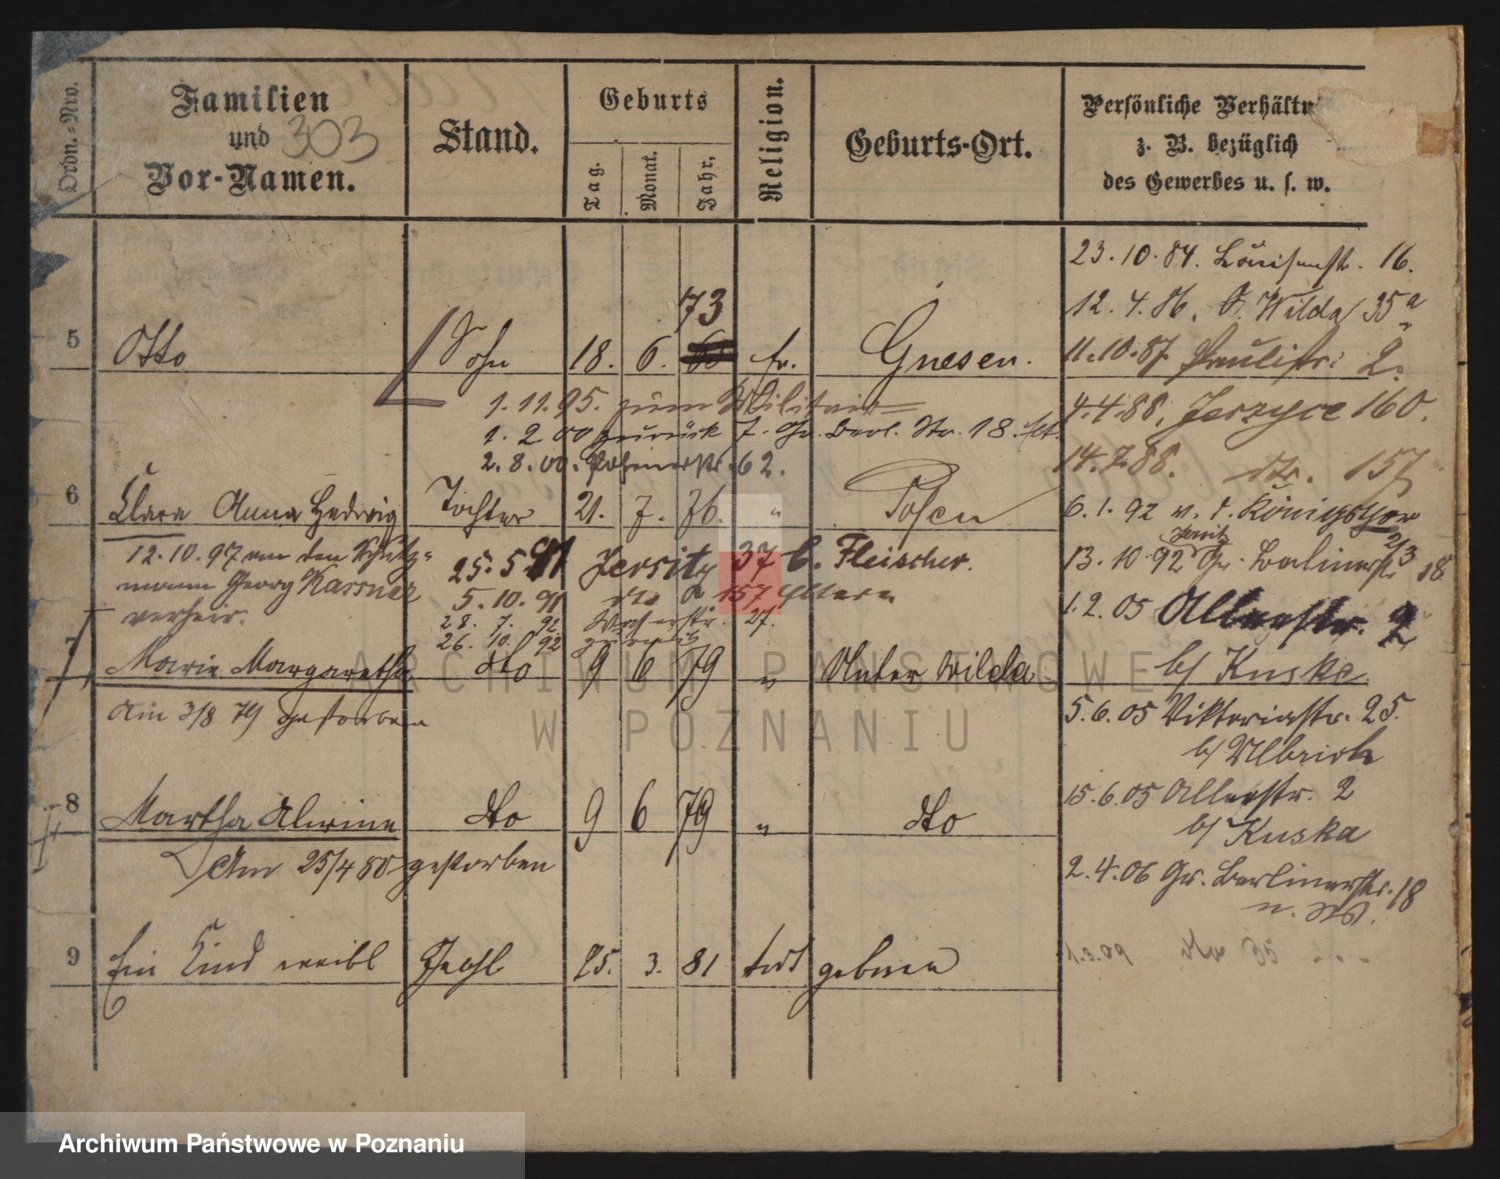 Ordn.=Nro.
Familien
und 303
Vor-Namen.
Stand.
Geburts
Tag.
Monat.
Jahr.
Religion.
Geburts-Ort.
Persönliche Verhältn
z. B. bezüglich
des Gewerbes u. s. w.
23. 10. 84. Louisenstr. 16.
12. 4. 86. Wilda 35 a
73
5 Otto Sohn 18. 6. Gnesen.
11. 10. 87. Paulistr. 2.
1. 11. 95. zum Militair
4. 4. 88. Jerzyce 160.
1. 2 00 zurück Berl. Str. 18.
2. 8. 00. 62.
14. 7. 88. dto. 157
6 Clara Anna Hedwig Tochter 21. 7. 76. " Posen
6. 1. 92 v.
12. 10. 97 an den Schutz=
mann Georg Kassner
verheir.
25. 5. 91 Jersitz 37 b. Fleischer.
13. 10. 92 Gr. Berlinerstr. 18
5. 10. 91 dto 157 Eltern
1. 2. 05
28. 7. 92 27.
26. 10. 92 zurück
b/ Kuske
7 Marie Margaretha dto 9 6 79 " Unter Wilda
am 3/8 79 gestorben
5. 6. 05 Viktoriastr. 25.
b/ Ulbrich
8 Martha Alwine dto 9 6 79 " dto
15. 6. 05 Allerstr. 2
b/ Kuska
Am 25/4 80 gestorben
2. 4. 06 Gr. Berlinerstr. 18
9 Ein Kind weibl Geschl 25. 3. 81 todt geboren
1. 3. 09 dto 35
ARCHIWUM PAŃSTWOWE
W POZNANIU
Archiwum Państwowe w Poznaniu